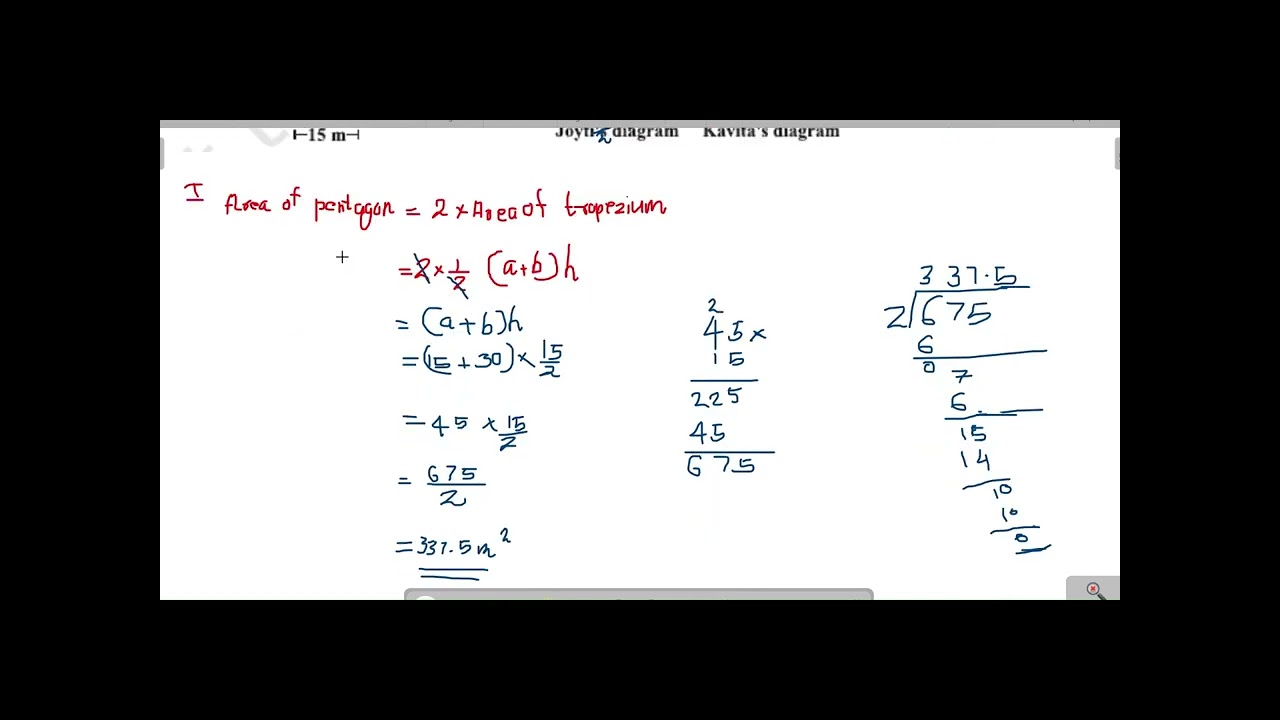 ⊢15 m⊣ Joyti's diagram Kavita's diagram
2
I Area of pentagon = 2 × Area of tropezium
= 2 × 1/2 (a+b)h
= (a+b)h
= (15 + 30) × 15/2
= 45 × 15/2
= 675/2
= 337.5 m²
2
45 ×
15
225
45
675
337.5
2)675
6
07
6
15
14
10
10
0